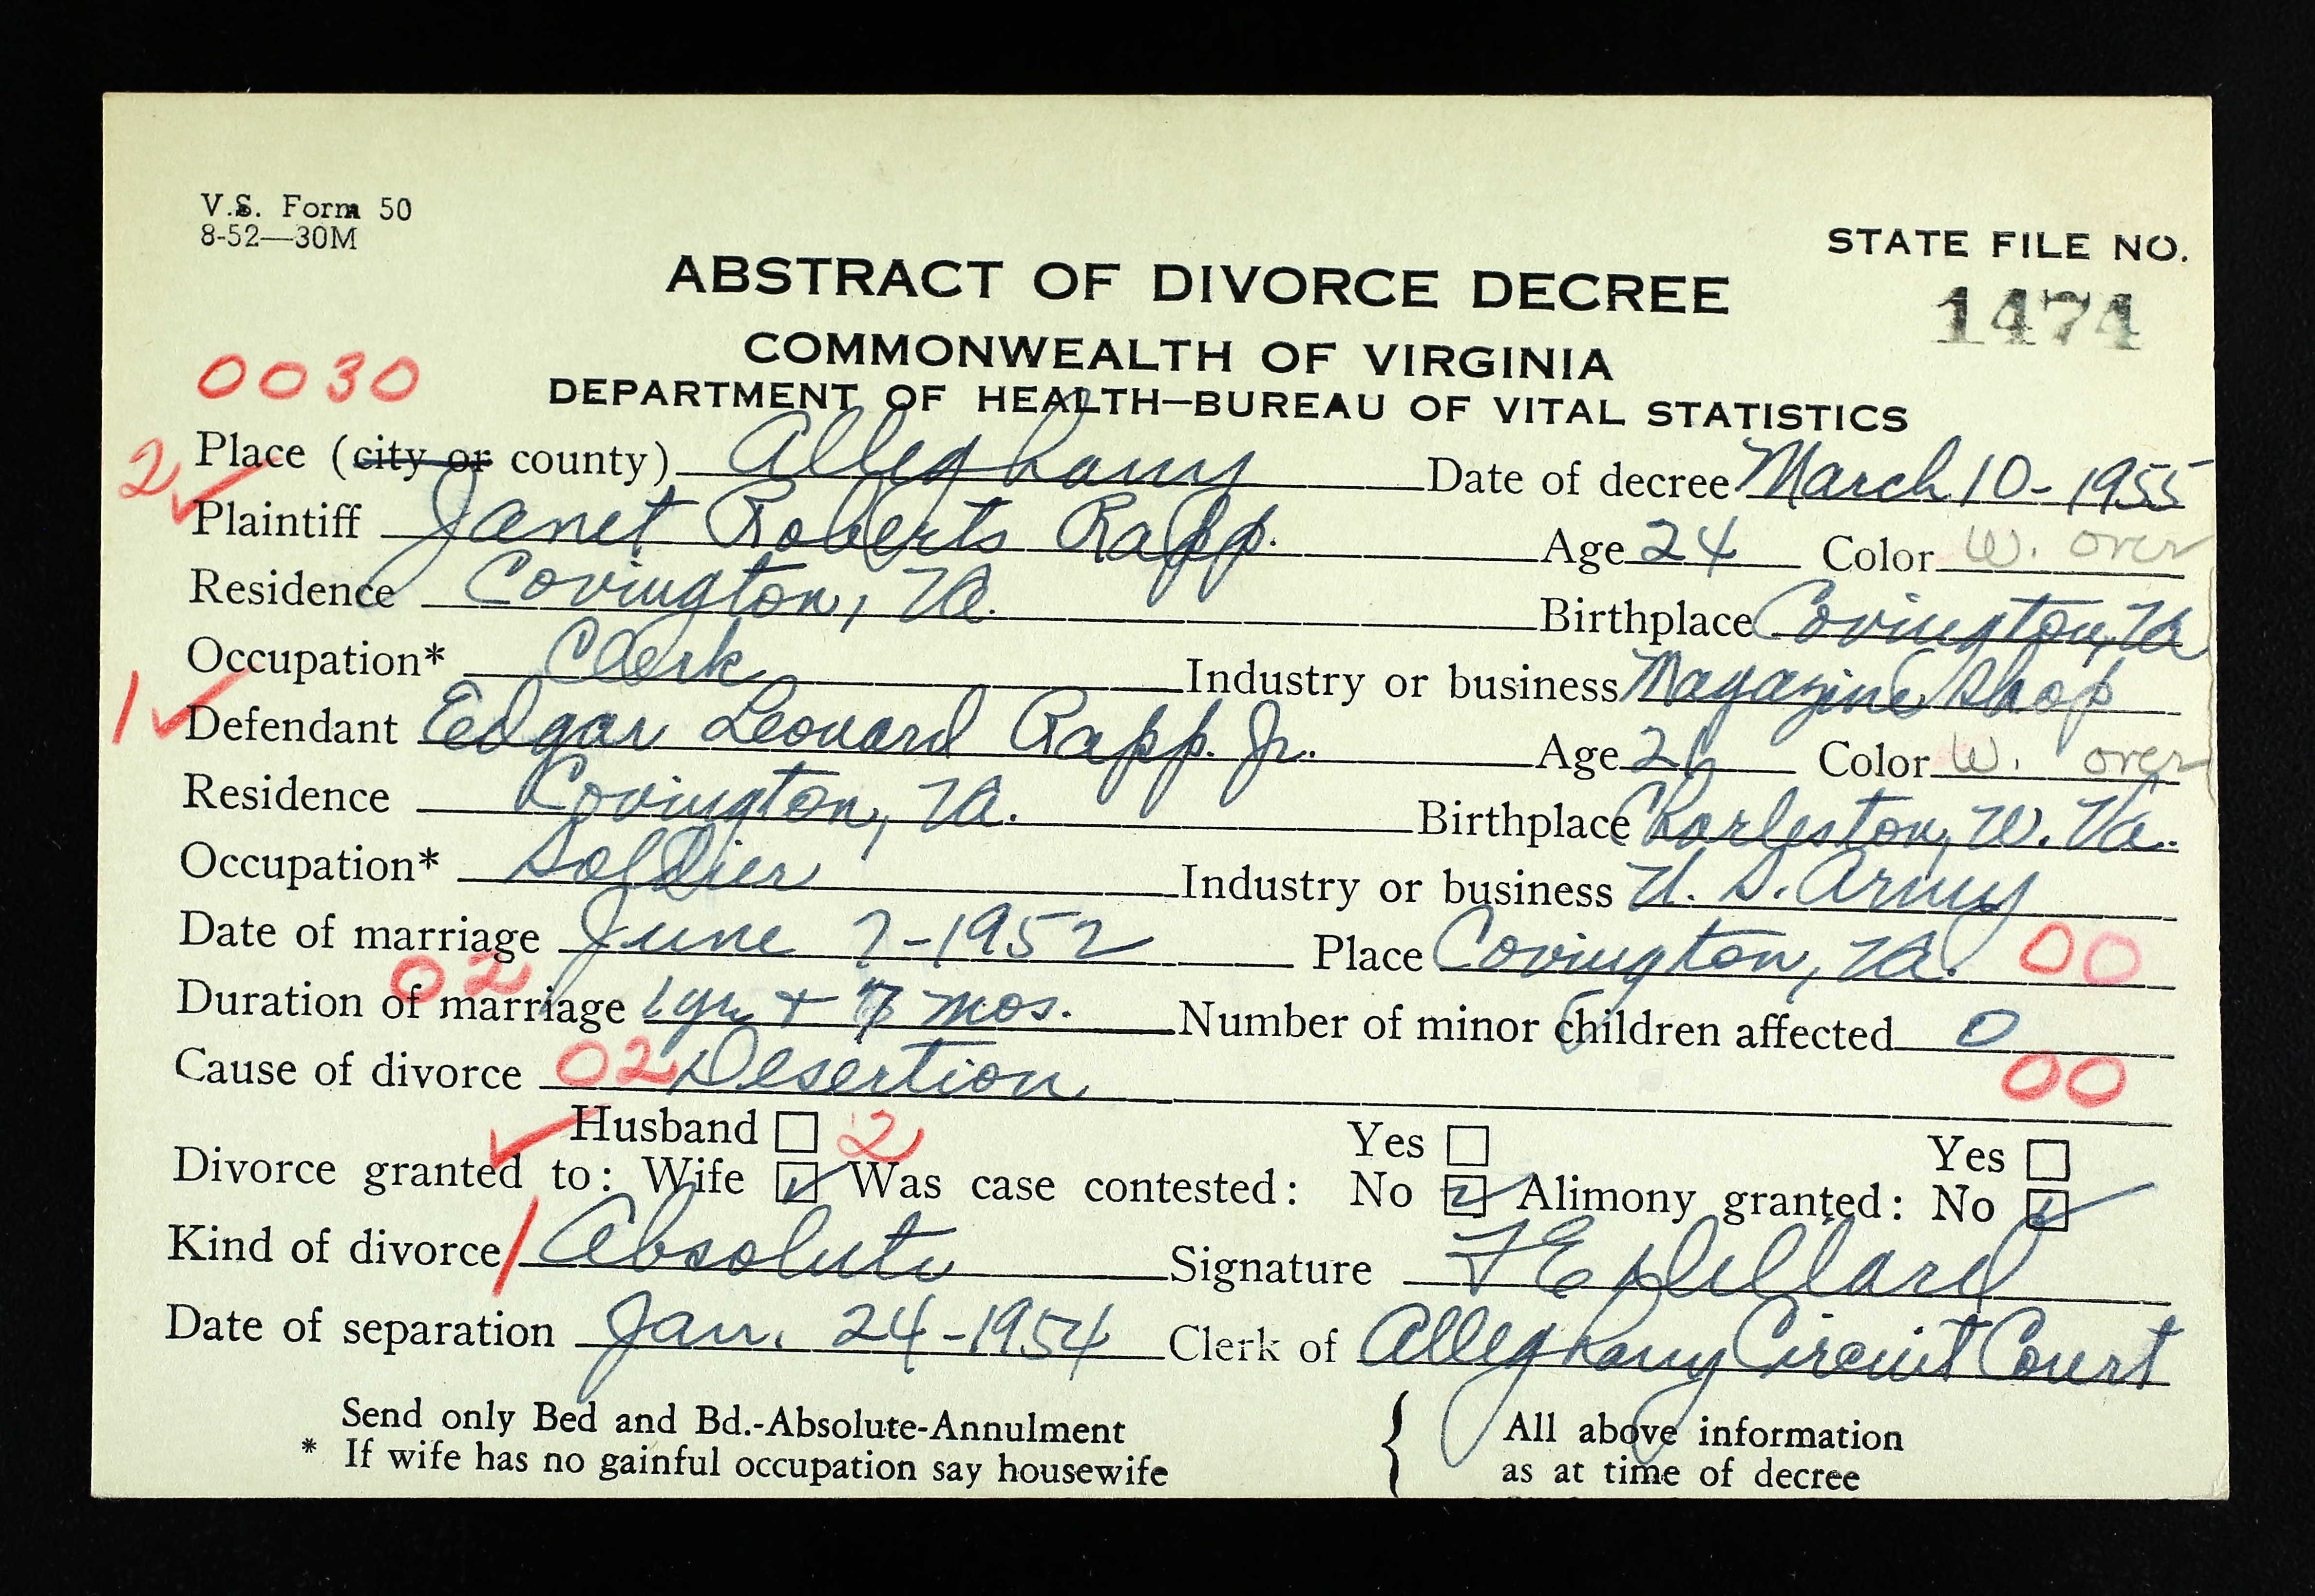 V.S. Form 50
8-52—30M
STATE FILE NO.
1474
ABSTRACT OF DIVORCE DECREE
COMMONWEALTH OF VIRGINIA
0030
DEPARTMENT OF HEALTH—BUREAU OF VITAL STATISTICS
2 Place (city or county) Alleghany Date of decree March 10-1955
Plaintiff Janet Roberts Rapp. Age 24 Color W. over
Residence Covington, Va. Birthplace Covington, Va
Occupation* Clerk Industry or business Magazine Shop
1 Defendant Edgar Leonard Rapp. Jr. Age 26 Color W. over
Residence Covington, Va. Birthplace Charleston, W. Va.
Occupation* Soldier Industry or business U. S. Army
Date of marriage June 7-1952 Place Covington, Va. 00
02
Duration of marriage 1 yr + 7 mos. Number of minor children affected 0
Cause of divorce 02 Desertion 00
Husband 2 Yes Yes
Divorce granted to: Wife Was case contested: No Alimony granted: No
Kind of divorce 1 Absolute Signature F E Dillard
Date of separation Jan. 24-1954 Clerk of Alleghany Circuit Court
Send only Bed and Bd.-Absolute-Annulment All above information
* If wife has no gainful occupation say housewife as at time of decree